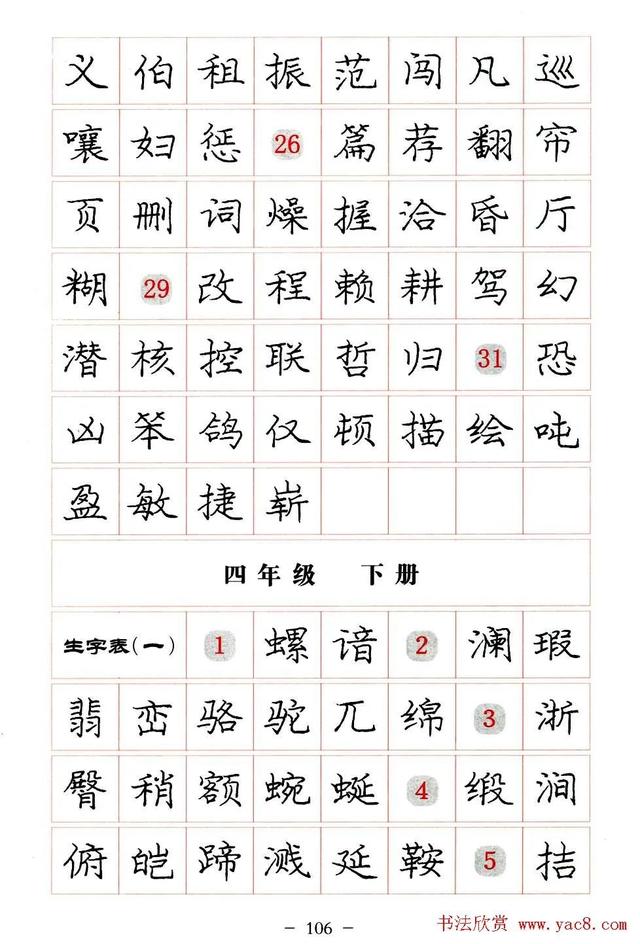 义 伯 租 振 范 闯 凡 巡
嚷 妇 惩 26 篇 荐 翻 帘
页 删 词 燥 握 洽 昏 厅
糊 29 改 程 赖 耕 驾 幻
潜 核 控 联 哲 归 31 恐
凶 笨 鸽 仅 顿 描 绘 吨
盈 敏 捷 崭
四年级 下册
生字表(一) 1 螺 谙 2 澜 瑕
翡 峦 骆 驼 兀 绵 3 浙
臀 稍 额 蜿 蜒 4 缎 涧
俯 皑 蹄 溅 延 鞍 5 拮
- 106 -
书法欣赏 www.yac8.com